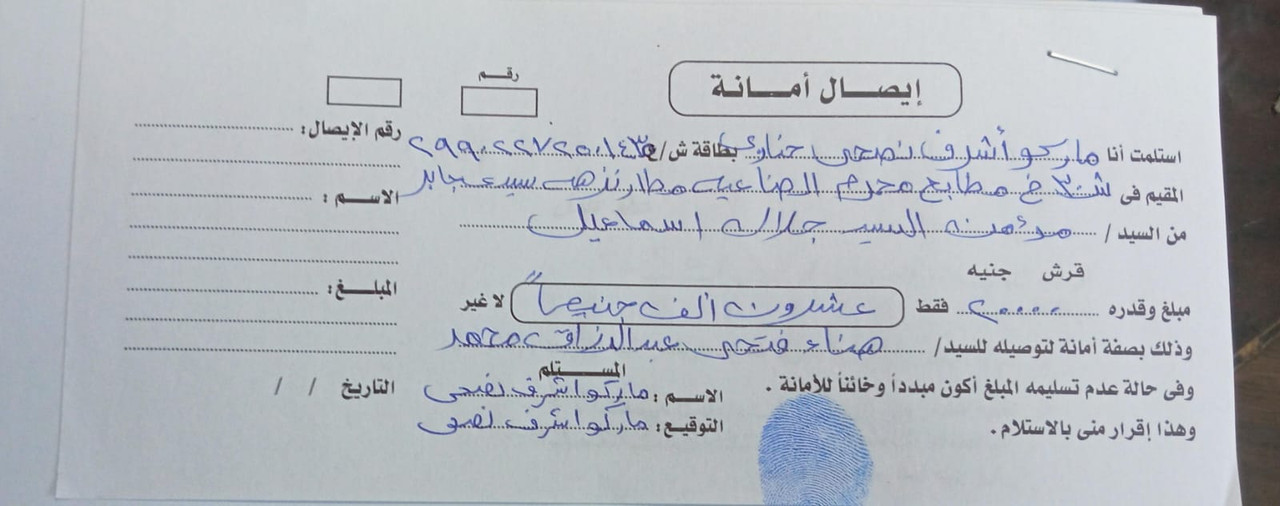 إيصال أمانة
رقم
استلمت أنا ماركو أشرف نصحى حناوى بطاقة ش/ع
المقيم فى ش خ مطابع محرم الصناعيه مطار نزهه سيد جابر
من السيد / مؤمن السيد جلال اسماعيل
قرش جنيه
مبلغ وقدره ٢٠٠٠٠ فقط عشرون ألف جنيهاً لا غير
وذلك بصفة أمانة لتوصيله للسيد/ هناء فتحى عبد الرزاق محمد
وفى حالة عدم تسليمه المبلغ أكون مبدداً وخائناً للأمانة .
وهذا إقرار منى بالاستلام .
المستلم
الاسم : ماركو اشرف نصحى
التوقيع : ماركو اشرف نصحى
رقم الإيصال :
الاسم :
المبلغ :
التاريخ / /